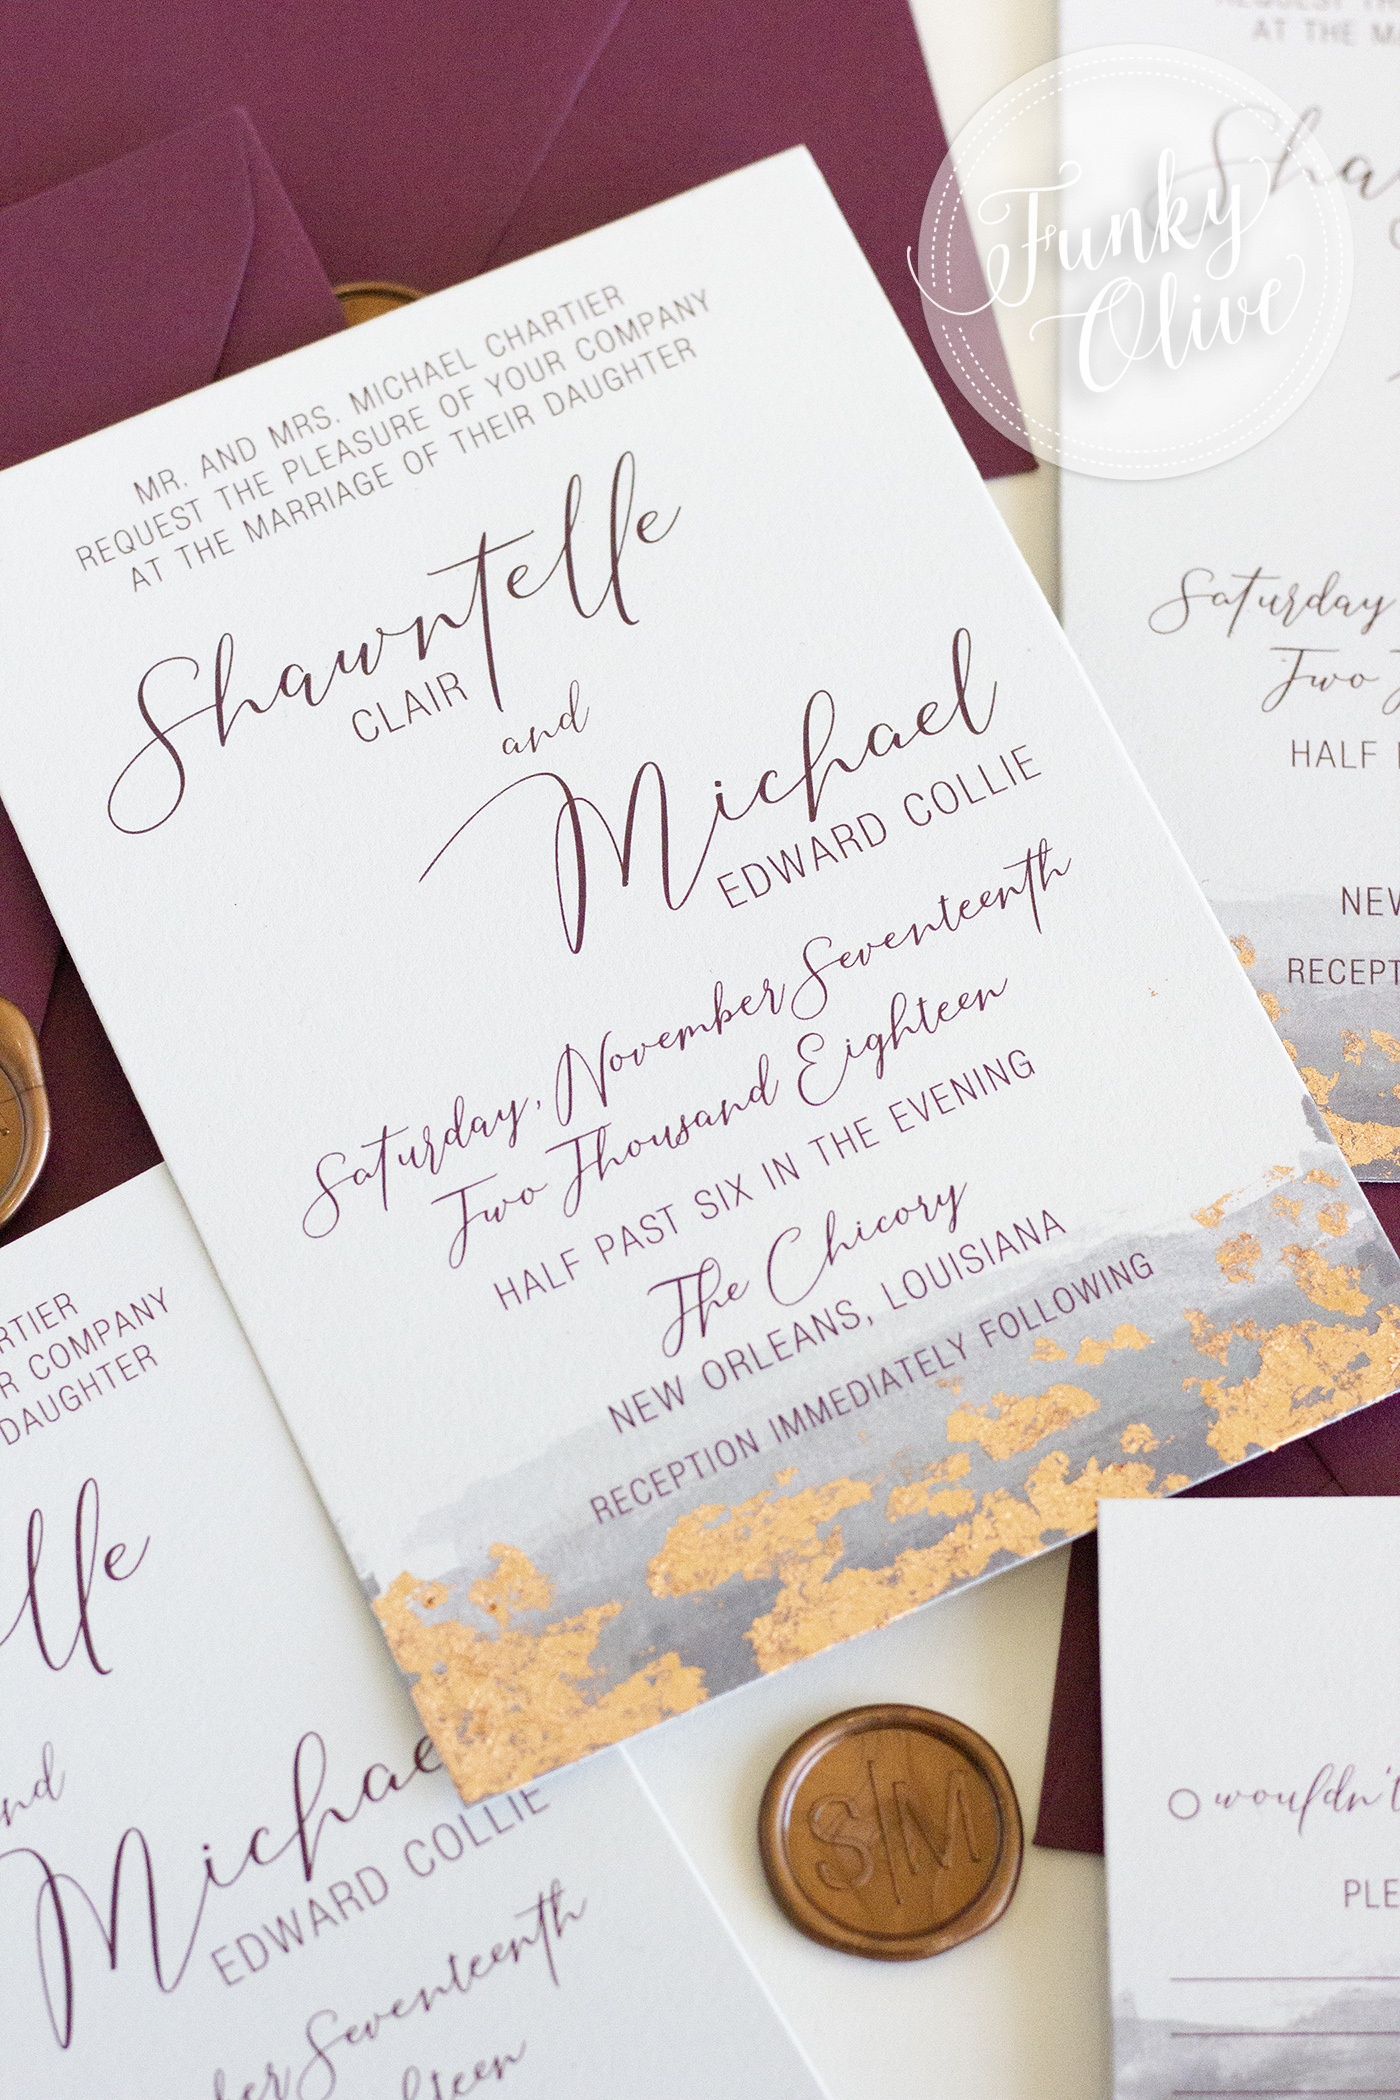 MR. AND MRS. MICHAEL CHARTIER
REQUEST THE PLEASURE OF YOUR COMPANY
AT THE MARRIAGE OF THEIR DAUGHTER
Shawntelle
CLAIR
and
Michael
EDWARD COLLIE
Saturday, November Seventeenth
Two Thousand Eighteen
HALF PAST SIX IN THE EVENING
The Chicory
NEW ORLEANS, LOUISIANA
RECEPTION IMMEDIATELY FOLLOWING
Funky
Olive
AT THE MA
Sha
Saturday
Two
HALF
NEW
RECEPT
RTIER
R COMPANY
DAUGHTER
lle
nd
Michae
EDWARD COLLIE
ber Seventeenth
hteen
S|M
wouldn't
PLE